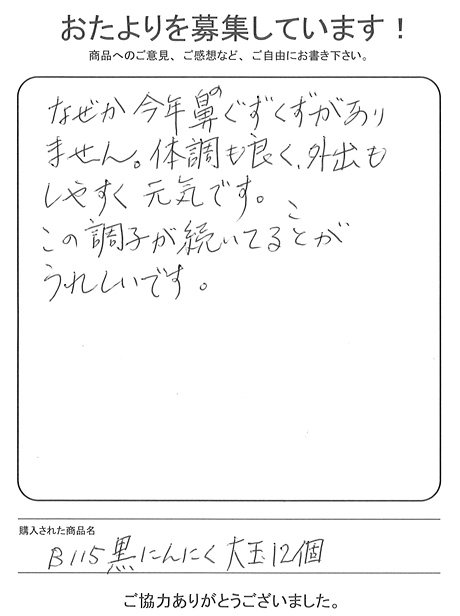 おたよりを募集しています！
商品へのご意見、ご感想など、ご自由にお書き下さい。
なぜか今年鼻のぐずぐずがあり
ません。体調も良く、外出も
しやすく元気です。
この調子が続いてることが
うれしいです。
購入された商品名
B115黒にんにく大玉12個
ご協力ありがとうございました。